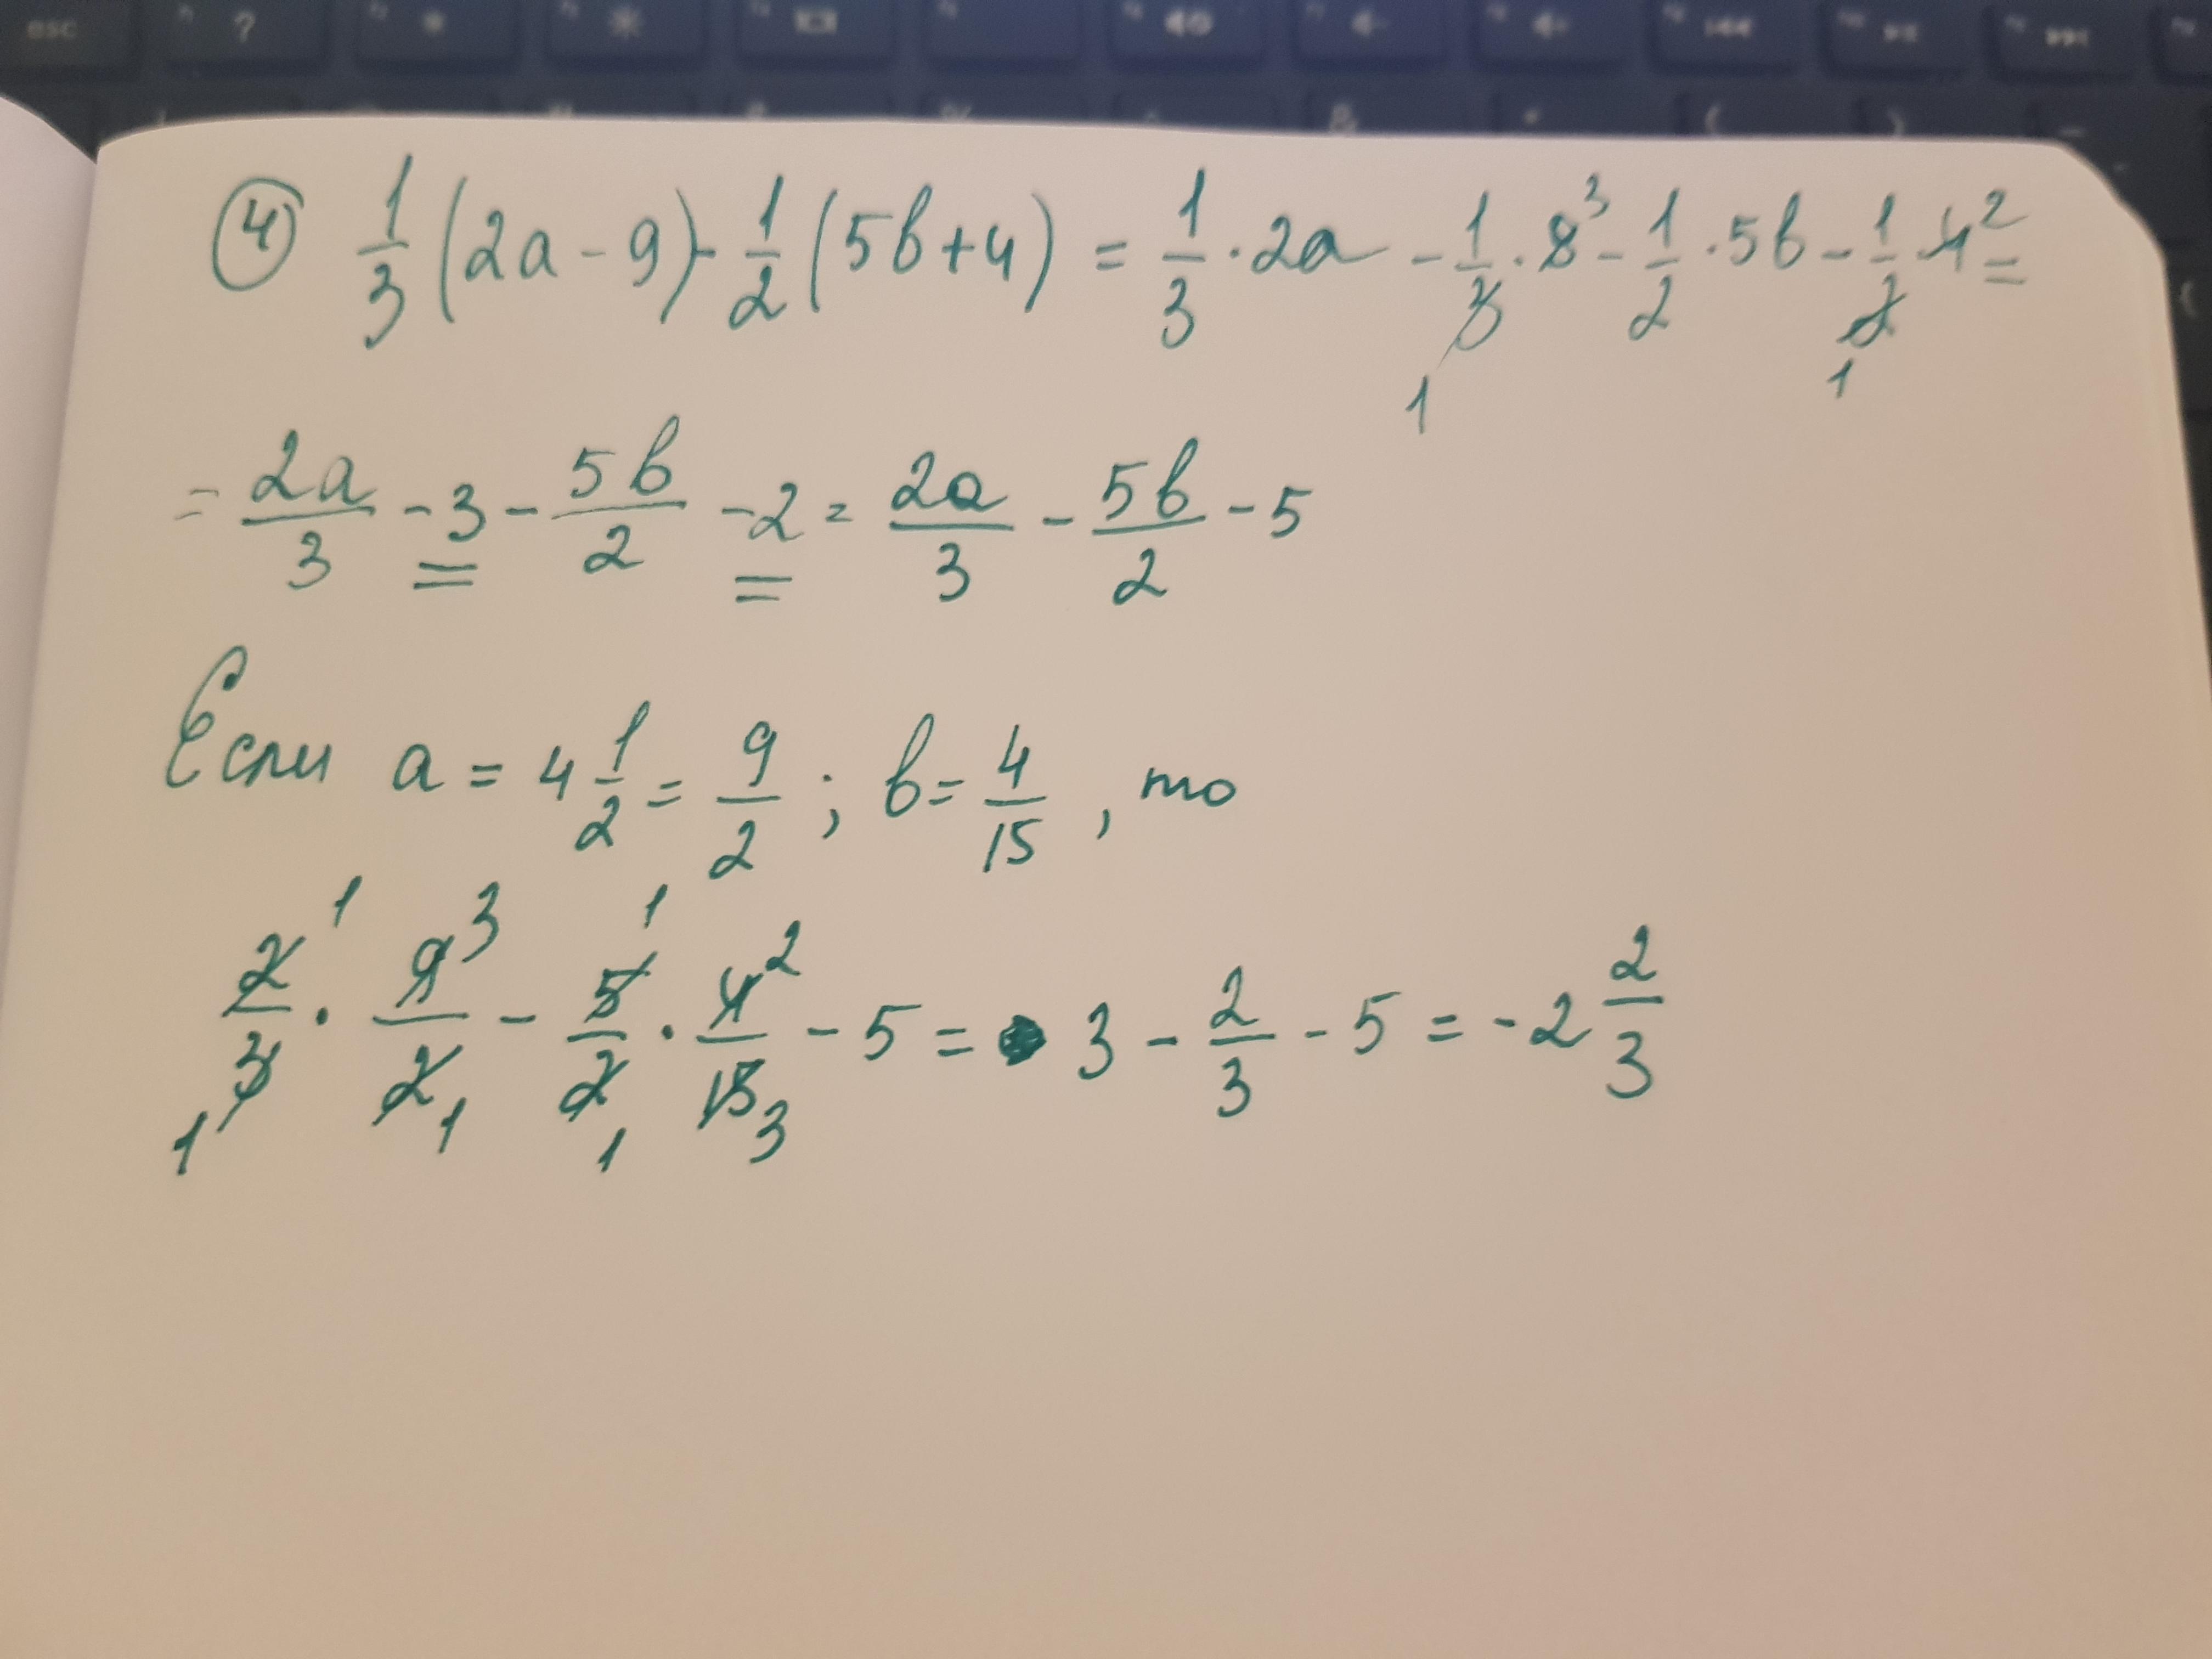 esc ?
④ 1/3 (2a - 9) - 1/2 (5b + 4) = 1/3 · 2a - 1/3 · 9 3 - 1/2 · 5b - 1/2 · 4 2 =
1 1
= 2a/3 - 3 - 5b/2 - 2 = 2a/3 - 5b/2 - 5
Если a = 4 1/2 = 9/2 ; b = 4/15 , то
1 3 1 2
2/3 · 9/2 - 5/2 · 4/15 - 5 = 3 - 2/3 - 5 = -2 2/3
1 1 1 3